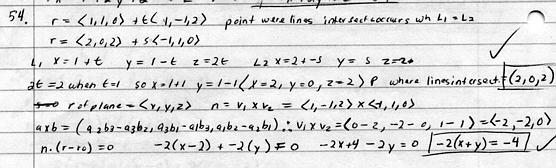 54. r = <1,1,0> + t<1,-1,2> point were lines intersect occurs wh L1 = L2
r = <2,0,2> + s<-1,1,0>
L1 x=1+t y=1-t z=2t L2 x=2+-s y=s z=2
2t=2 when t=1 so x=1+1 y=1-1 (x=2, y=0, z=2) P where lines intersect = (2,0,2)
r of plane = <x,y,z> n = v1 x v2 = <1,-1,2> x <-1,1,0>
axb = (a2b3-a3b2, a3b1-a1b3, a1b2-a2b1) ∴ v1 x v2 = <0-2, -2-0, 1-1> = <-2,-2,0>
n.(r-r0) = 0 -2(x-2) + -2(y) = 0 -2x+4-2y=0 -2(x+y) = -4